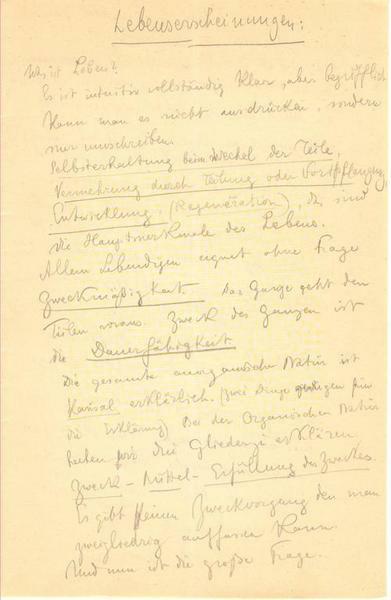 Lebenserscheinungen:
Was ist Leben?
Es ist intuitiv vollständig klar, aber begrifflich
kann man es nicht ausdrücken, sondern
nur umschreiben.
Selbsterhaltung beim Wechsel der Teile,
Vermehrung durch Teilung oder Fortpflanzung,
Entwicklung, (Regeneration), das sind
die Hauptmerkmale des Lebens.
Allem Lebendigen eignet ohne Frage
Zweckmäßigkeit. Das Ganze geht den
Teilen voraus. Zweck des Ganzen ist
die Dauerfähigkeit.
Die gesamte anorganische Natur ist
kausal erklärlich. (Zwei Dinge genügen für
die Erklärung) Bei der Organischen Natur
haben wir drei Glieder zu erklären
Zweck - Mittel - Erfüllung des Zweckes.
Es gibt keinen Zweckvorgang den man
zweigliedrig auffassen kann.
Und nun ist die große Frage.